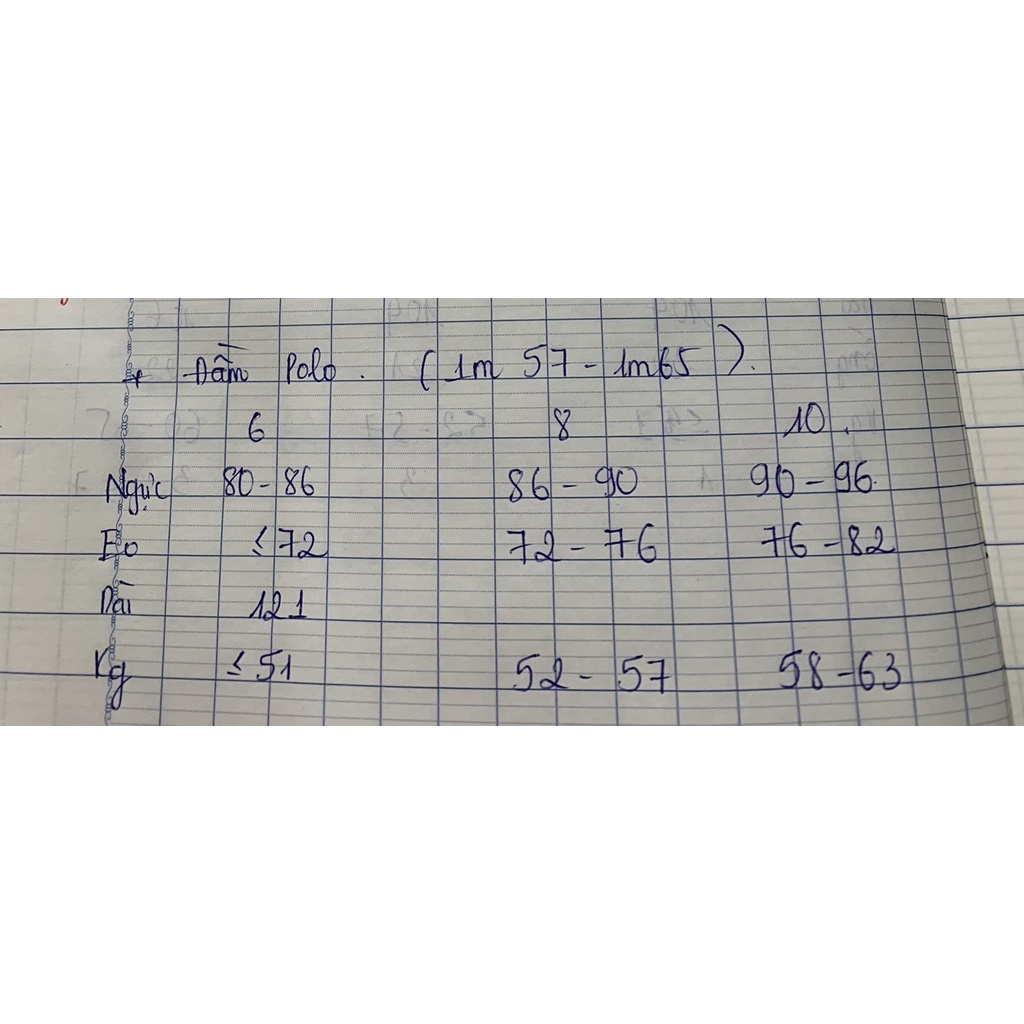 + Đầm Polo. (1m 57 - 1m65).
6 8 10.
Ngực 80 - 86 86 - 90 90 - 96.
Eo ≤ 72 72 - 76 76 - 82
Dài 121
Kg ≤ 51 52 - 57 58 - 63